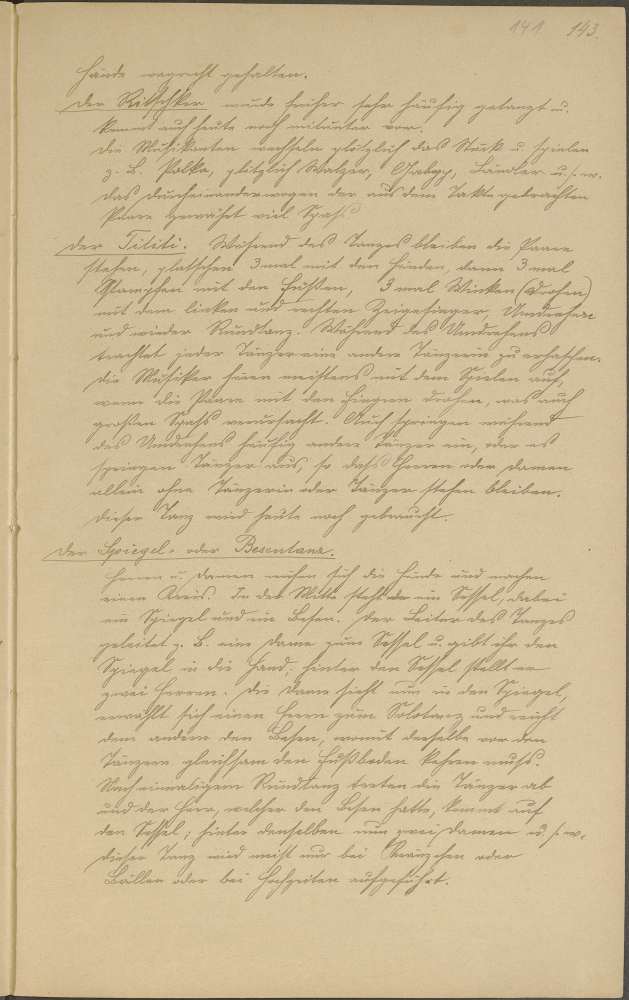 141. 143.
Hände wagrecht gehalten.
Der Ritschker wurde früher sehr häufig getanzt u.
kommt auch heute noch mitunter vor.
Die Musikanten wechseln plötzlich das Stück u. spielen
z. B. Polka, plötzlich Walzer, Galopp, Ländler u. s. w.
Das Durcheinanderwogen der aus dem Takte gebrachten
Paare gewährt viel Spaß.
Der Tititi. Während des Tanzes bleiben die Paare
stehen, platschen 3 mal mit den Händen, dann 3 mal
Stampfen mit den Füßen, 3 mal Winken (Drohen)
mit dem linken und rechten Zeigefinger, Umdrehen
und wieder Rundtanz. Während des Umdrehens
trachtet jeder Tänzer eine andere Tänzerin zu erhaschen.
Die Musiker hören meistens mit dem Spielen auf,
wenn die Paare mit den Fingern drohen, was auch
großen Spaß verursacht. Auch springen während
des Umdrehens häufig andere Tänzer ein, oder es
springen Tänzer aus, so daß Herren oder Damen
allein ohne Tänzerin oder Tänzer stehen bleiben.
Dieser Tanz wird heute noch gebraucht.
Der Spiegel- oder Besentanz.
Herren u. Damen reichen sich die Hände und machen
einen Kreis. In der Mitte steht ein Sessel, dabei
ein Spiegel und ein Besen. Der Leiter des Tanzes
geleitet z. B. eine Dame zum Sessel u. gibt ihr den
Spiegel in die Hand; hinter den Sessel stellt er
zwei Herren. Die Dame sieht nun in den Spiegel,
erwählt sich einen Herrn zum Solotanz und reicht
dem andern den Besen, womit derselbe vor den
Tänzern gleichsam den Fußboden kehren muß.
Nach einmaligem Rundtanz treten die Tänzer ab
und der Herr, welcher den Besen hatte, kommt auf
den Sessel; hinter denselben nun zwei Damen u. s. w.
Dieser Tanz wird meist nur bei Kränzchen oder
Bällen oder bei Hochzeiten aufgeführt.